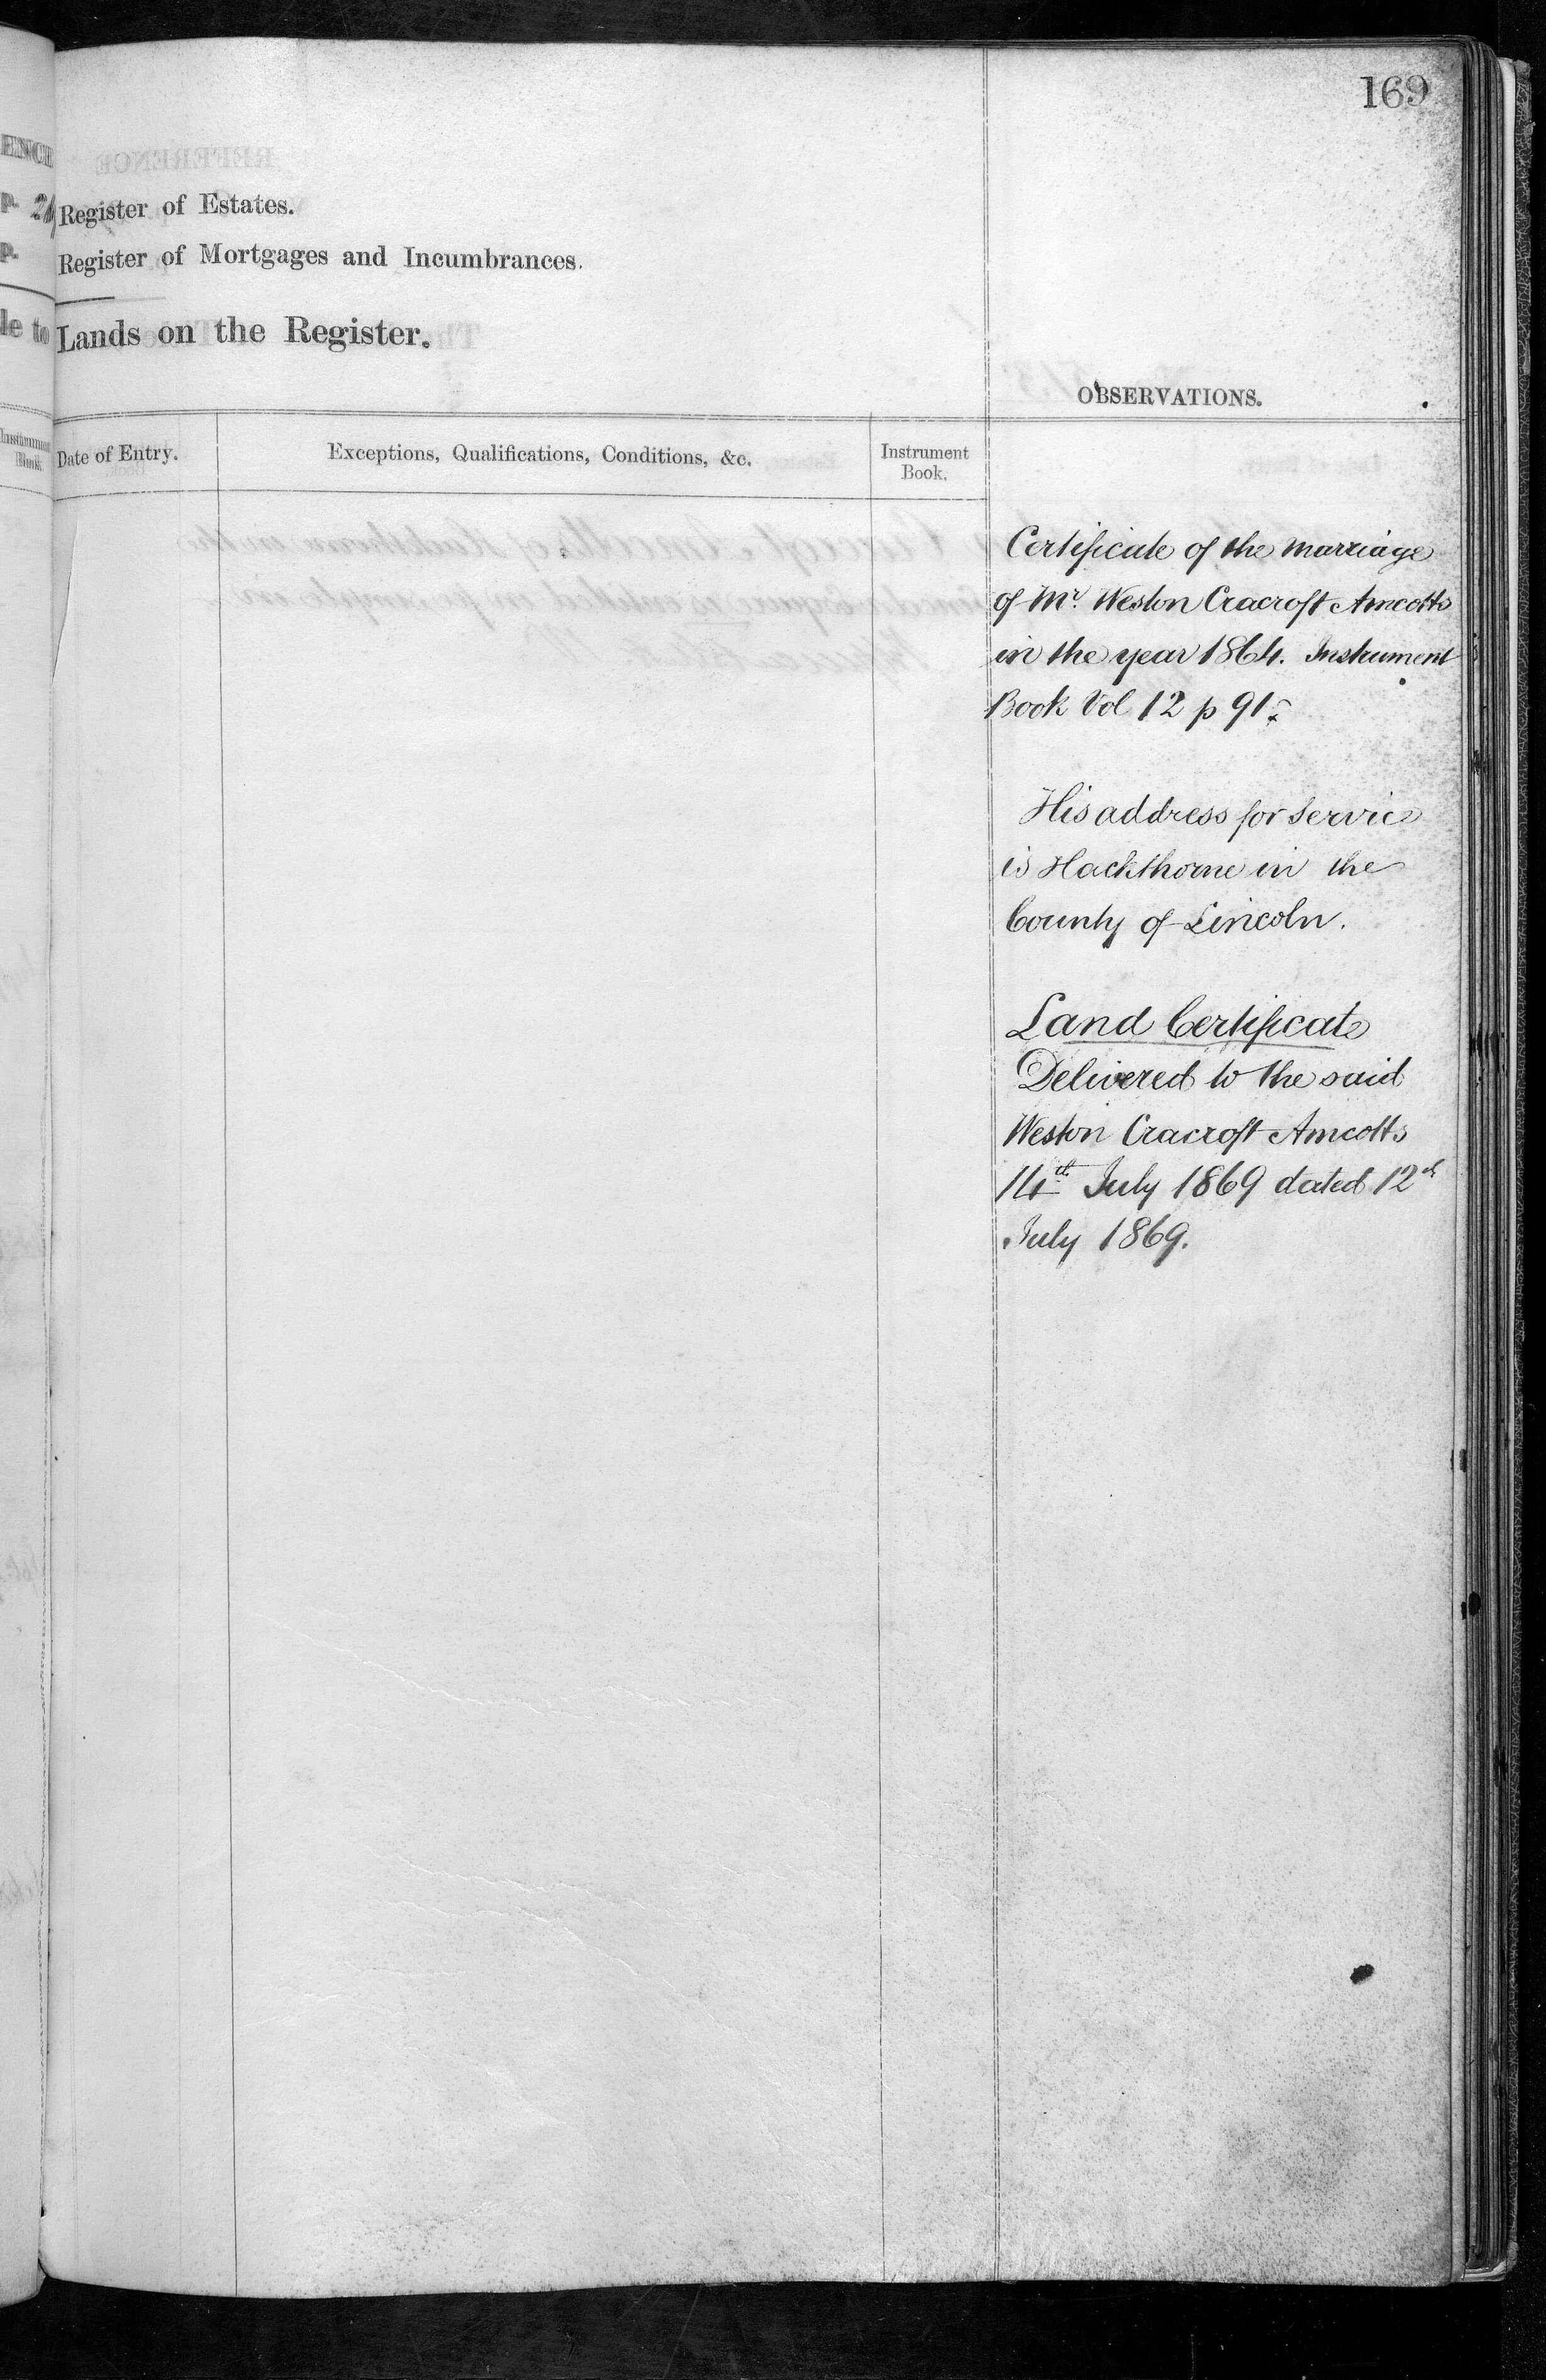 169
ENCE
p. 
Register of Estates.
p.
Register of Mortgages and Incumbrances.
le to
Lands on the Register.
OBSERVATIONS.
Instrument
Book.
Date of Entry.
Exceptions, Qualifications, Conditions, &c.
Instrument
Book.
Certificate of the marriage
of Mr. Weston Cracroft Amcotts
in the year 1864. Instrument
Book Vol 12 p 91.
His address for service
is Hackthorne in the
County of Lincoln.
Land Certificate
Delivered to the said
Weston Cracroft Amcotts
14th July 1869 dated 12th
July 1869.